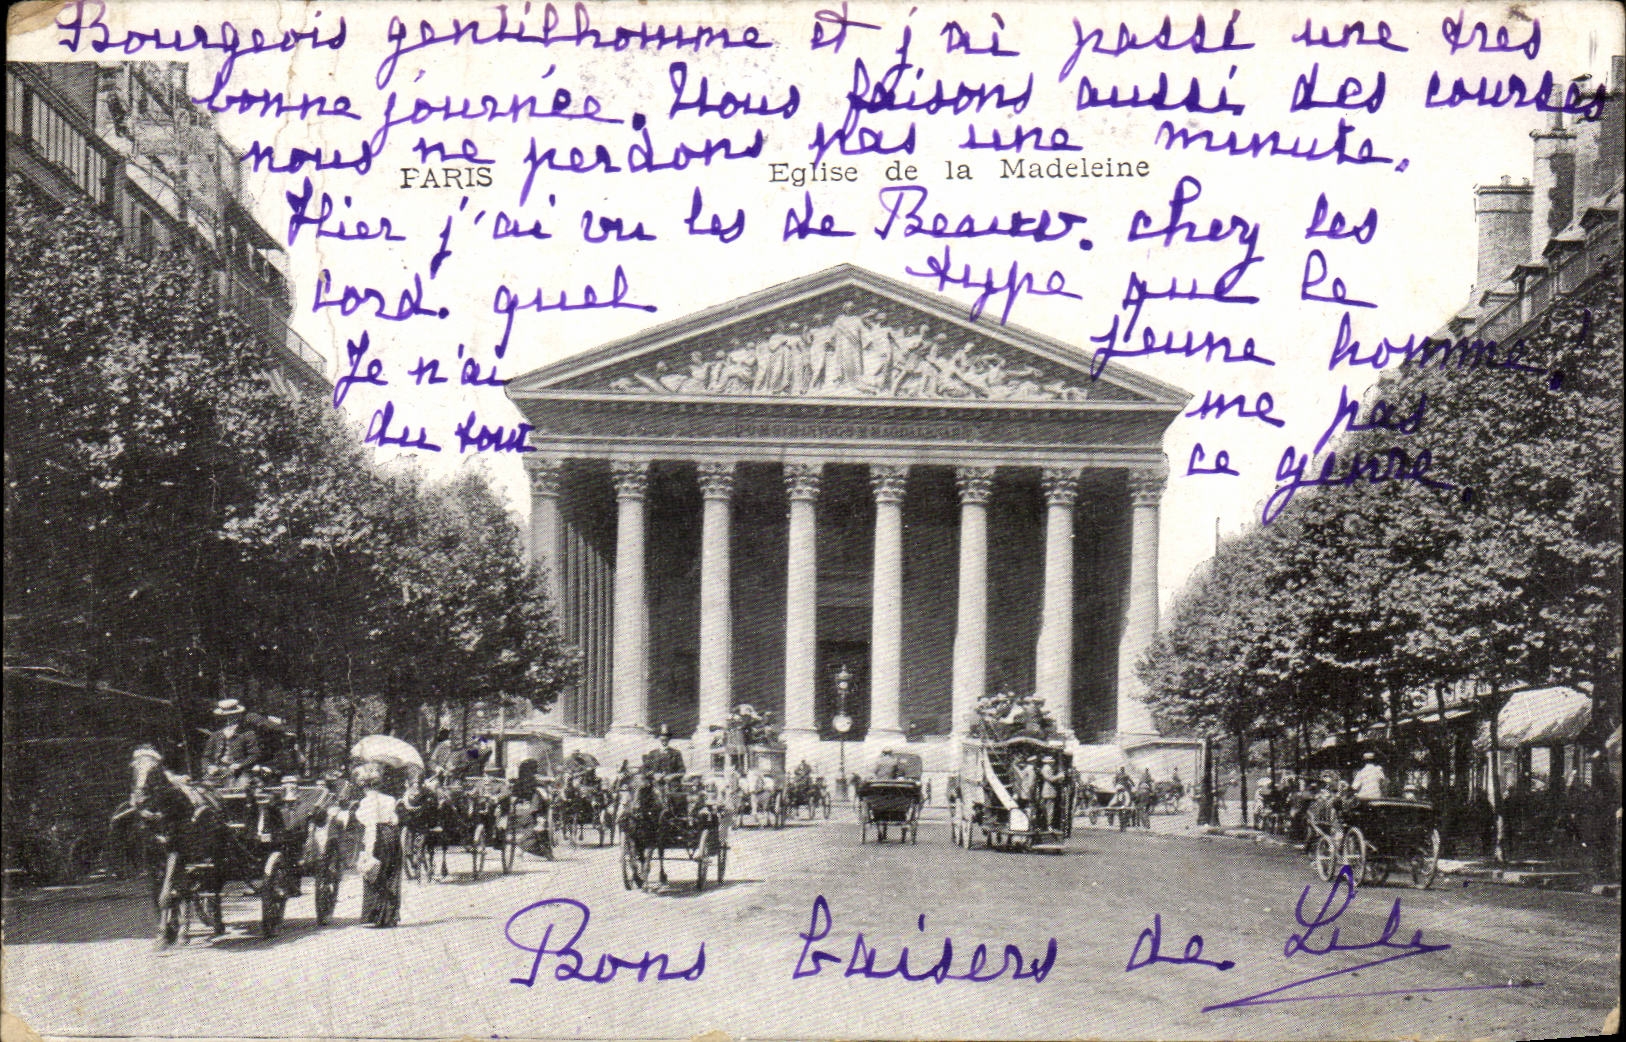 Bourgeois gentilhomme et j'ai passé une très
bonne journée. Nous faisons aussi des courses
nous ne perdons pas une minute.
PARIS Eglise de la Madeleine
Hier j'ai vu les de Beauv. chez les
Cord. quel type que le
jeune homme!
Je n'aime pas
du tout ce genre.
Bons baisers de Lili